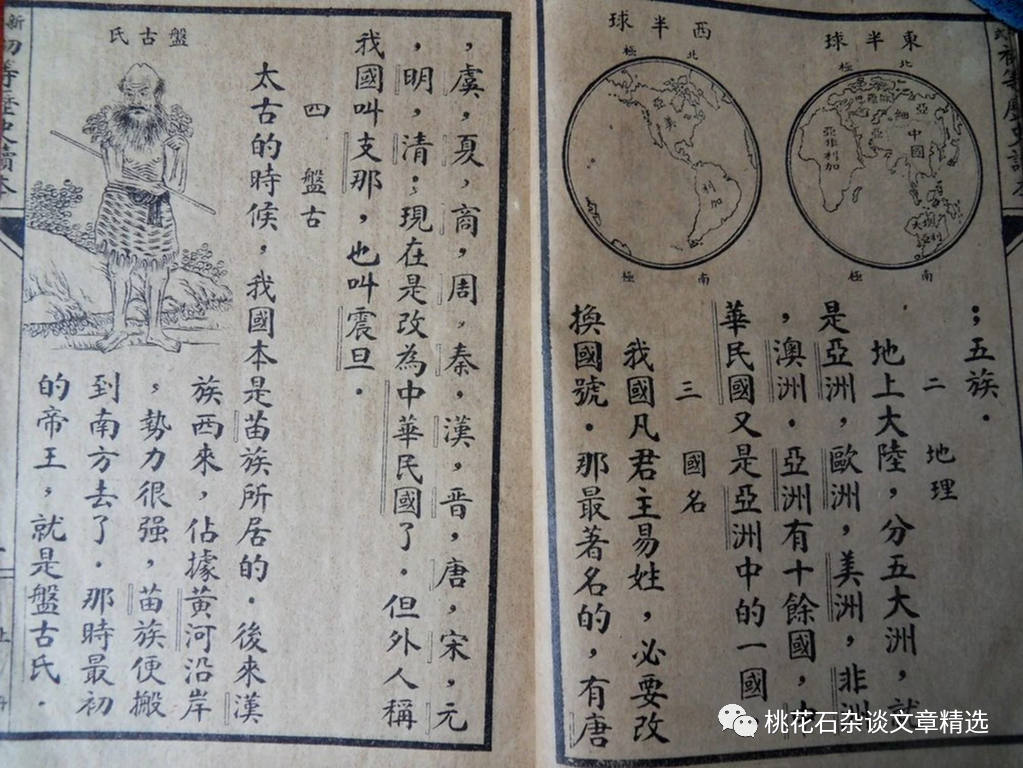 西半球
東半球
北
極
北
極
亞
美
利
加
亞
細
亞
中
國
歐羅巴
亞非利加
澳大利亞
南
極
南
極
；五族．
二　地理
地上大陸，分五大洲，就
是亞洲，歐洲，美洲，非洲
，澳洲．亞洲有十餘國，中
華民國又是亞洲中的一國
三　國名
我國凡君主易姓，必要改
換國號．那最著名的，有唐
，虞，夏，商，周，秦，漢，晋，唐，宋，元
，明，清．現在是改為中華民國了．但外人稱
我國叫支那，也叫震旦．
四　盤古
太古的時候，我國本是苗族所居的．後來漢
族西來，佔據黃河沿岸
，勢力很强，苗族便搬
到南方去了．那時最初
的帝王，就是盤古氏．
盤古氏
上
桃花石杂谈文章精选